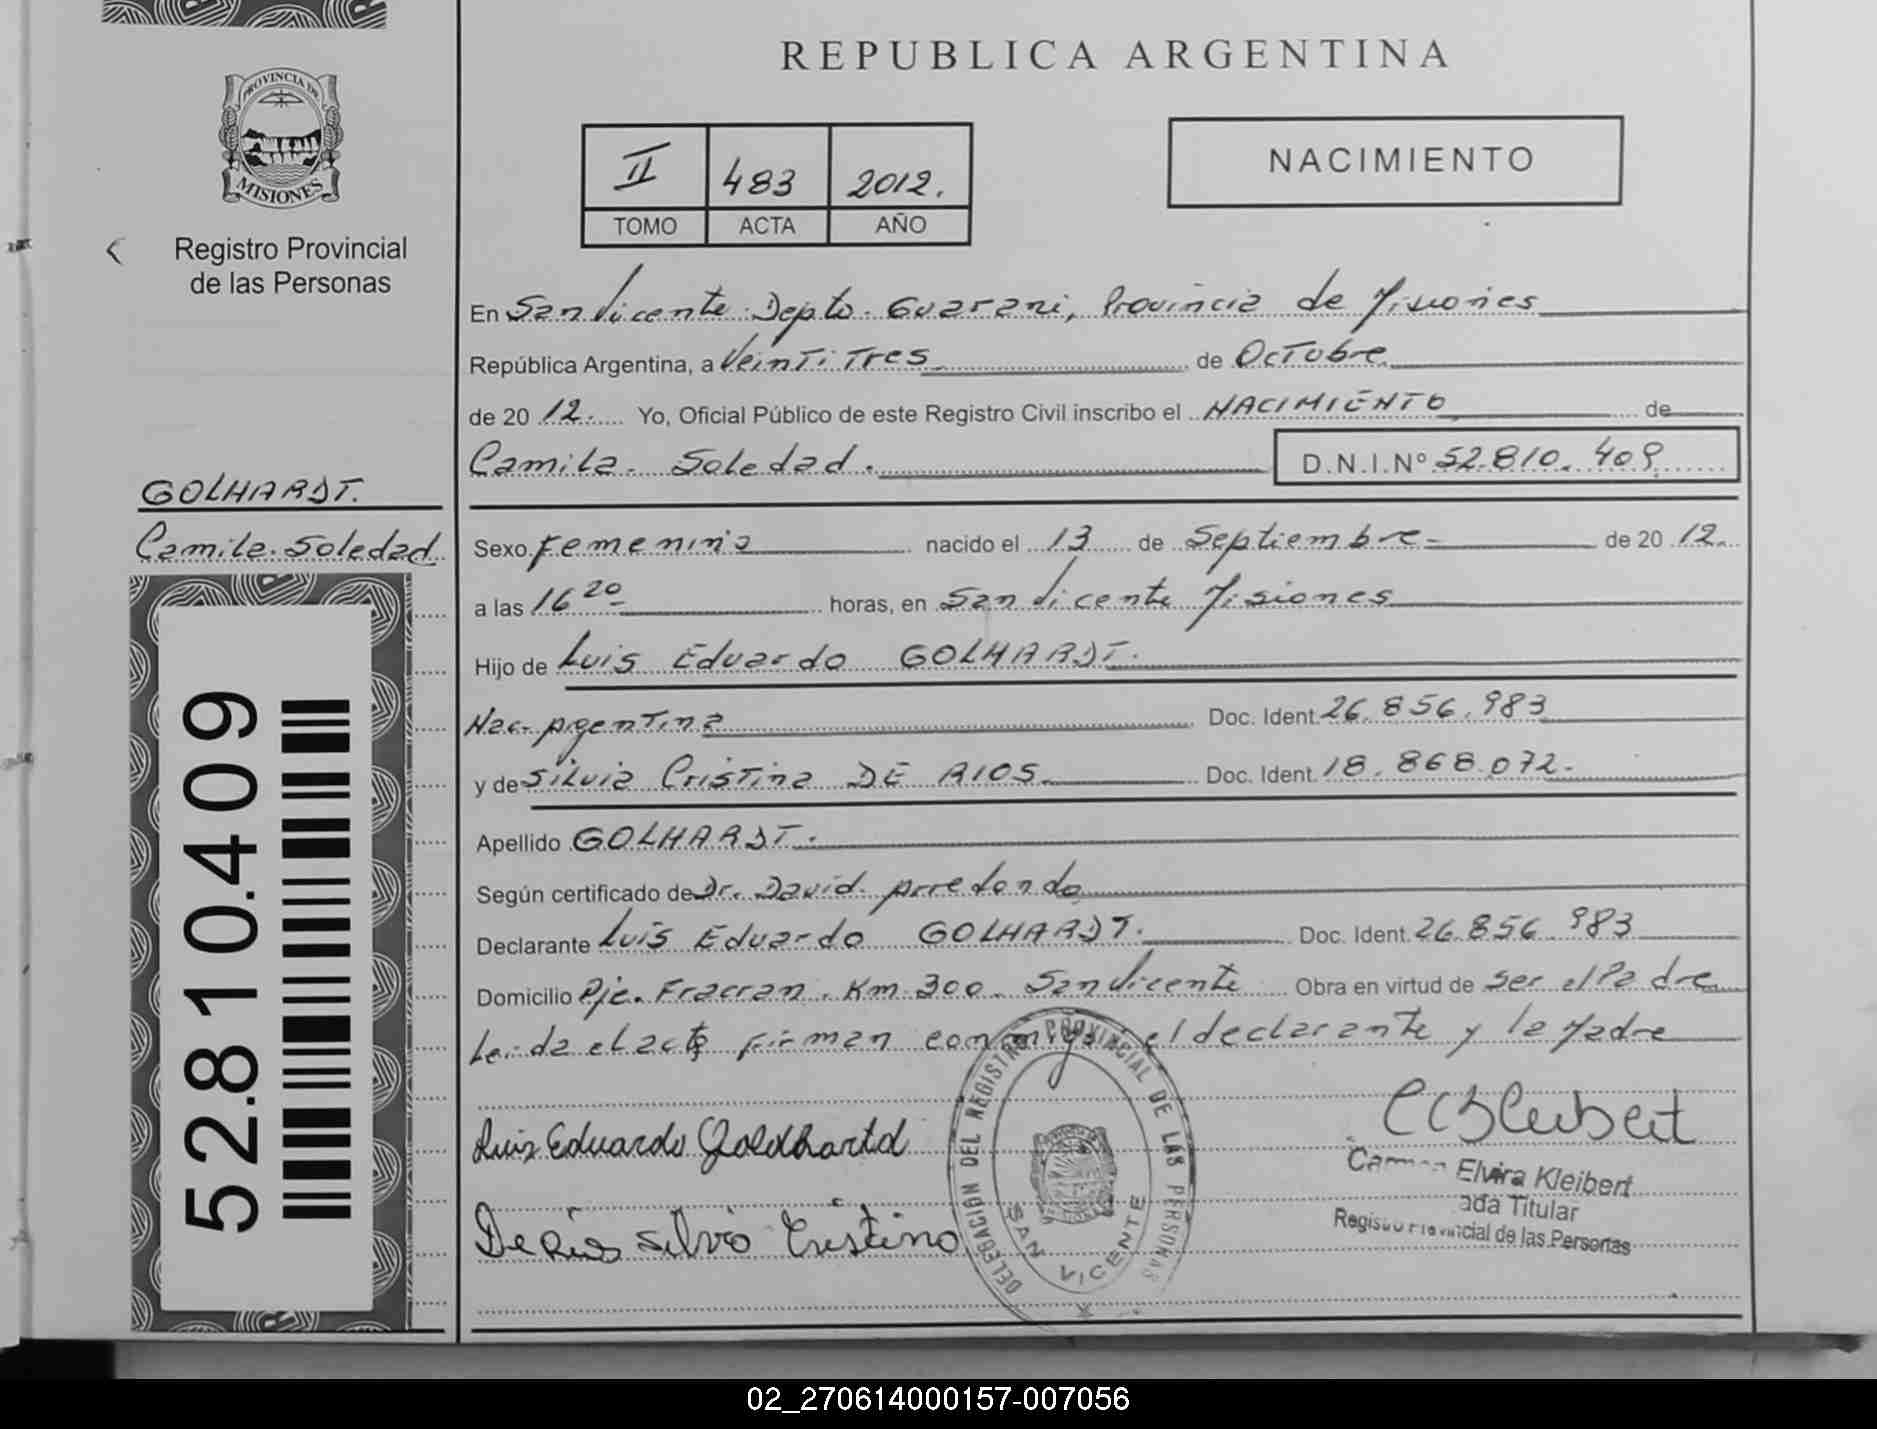 REPUBLICA ARGENTINA
PROVINCIA DE
MISIONES
Registro Provincial
de las Personas
II 483 2012.
TOMO ACTA AÑO
NACIMIENTO
En San Vicente Depto. Guarani, Provincia de Misiones
República Argentina, a Veintitres de Octubre
de 20 12. Yo, Oficial Público de este Registro Civil inscribo el NACIMIENTO de
Camila Soledad. D.N.I.Nº 52.810.409
GOLHARDT.
Camila Soledad
52.810.409
Sexo femenino nacido el 13 de Septiembre de 20 12.
a las 16 20 horas, en San Vicente Misiones
Hijo de Luis Eduardo GOLHARDT.
Nac. Argentina Doc. Ident. 26.856.983
y de Silvia Cristina DE RIOS. Doc. Ident. 18.868.072.
Apellido GOLHARDT.
Según certificado de Dr. David Arredondo
Declarante Luis Eduardo GOLHARDT. Doc. Ident. 26.856.983
Domicilio Pje. Fracran. Km 300. San Vicente Obra en virtud de ser el Padre
Leida el acta firman conmigo el declarante y la Madre
Luis Eduardo Goldhartd
De Rios Silvia Cristina
DELEGACIÓN DEL REGISTRO PROVINCIAL DE LAS PERSONAS
SAN VICENTE
Elvira Kleibert
Titular
Registro Provincial de las Personas
02_270614000157-007056